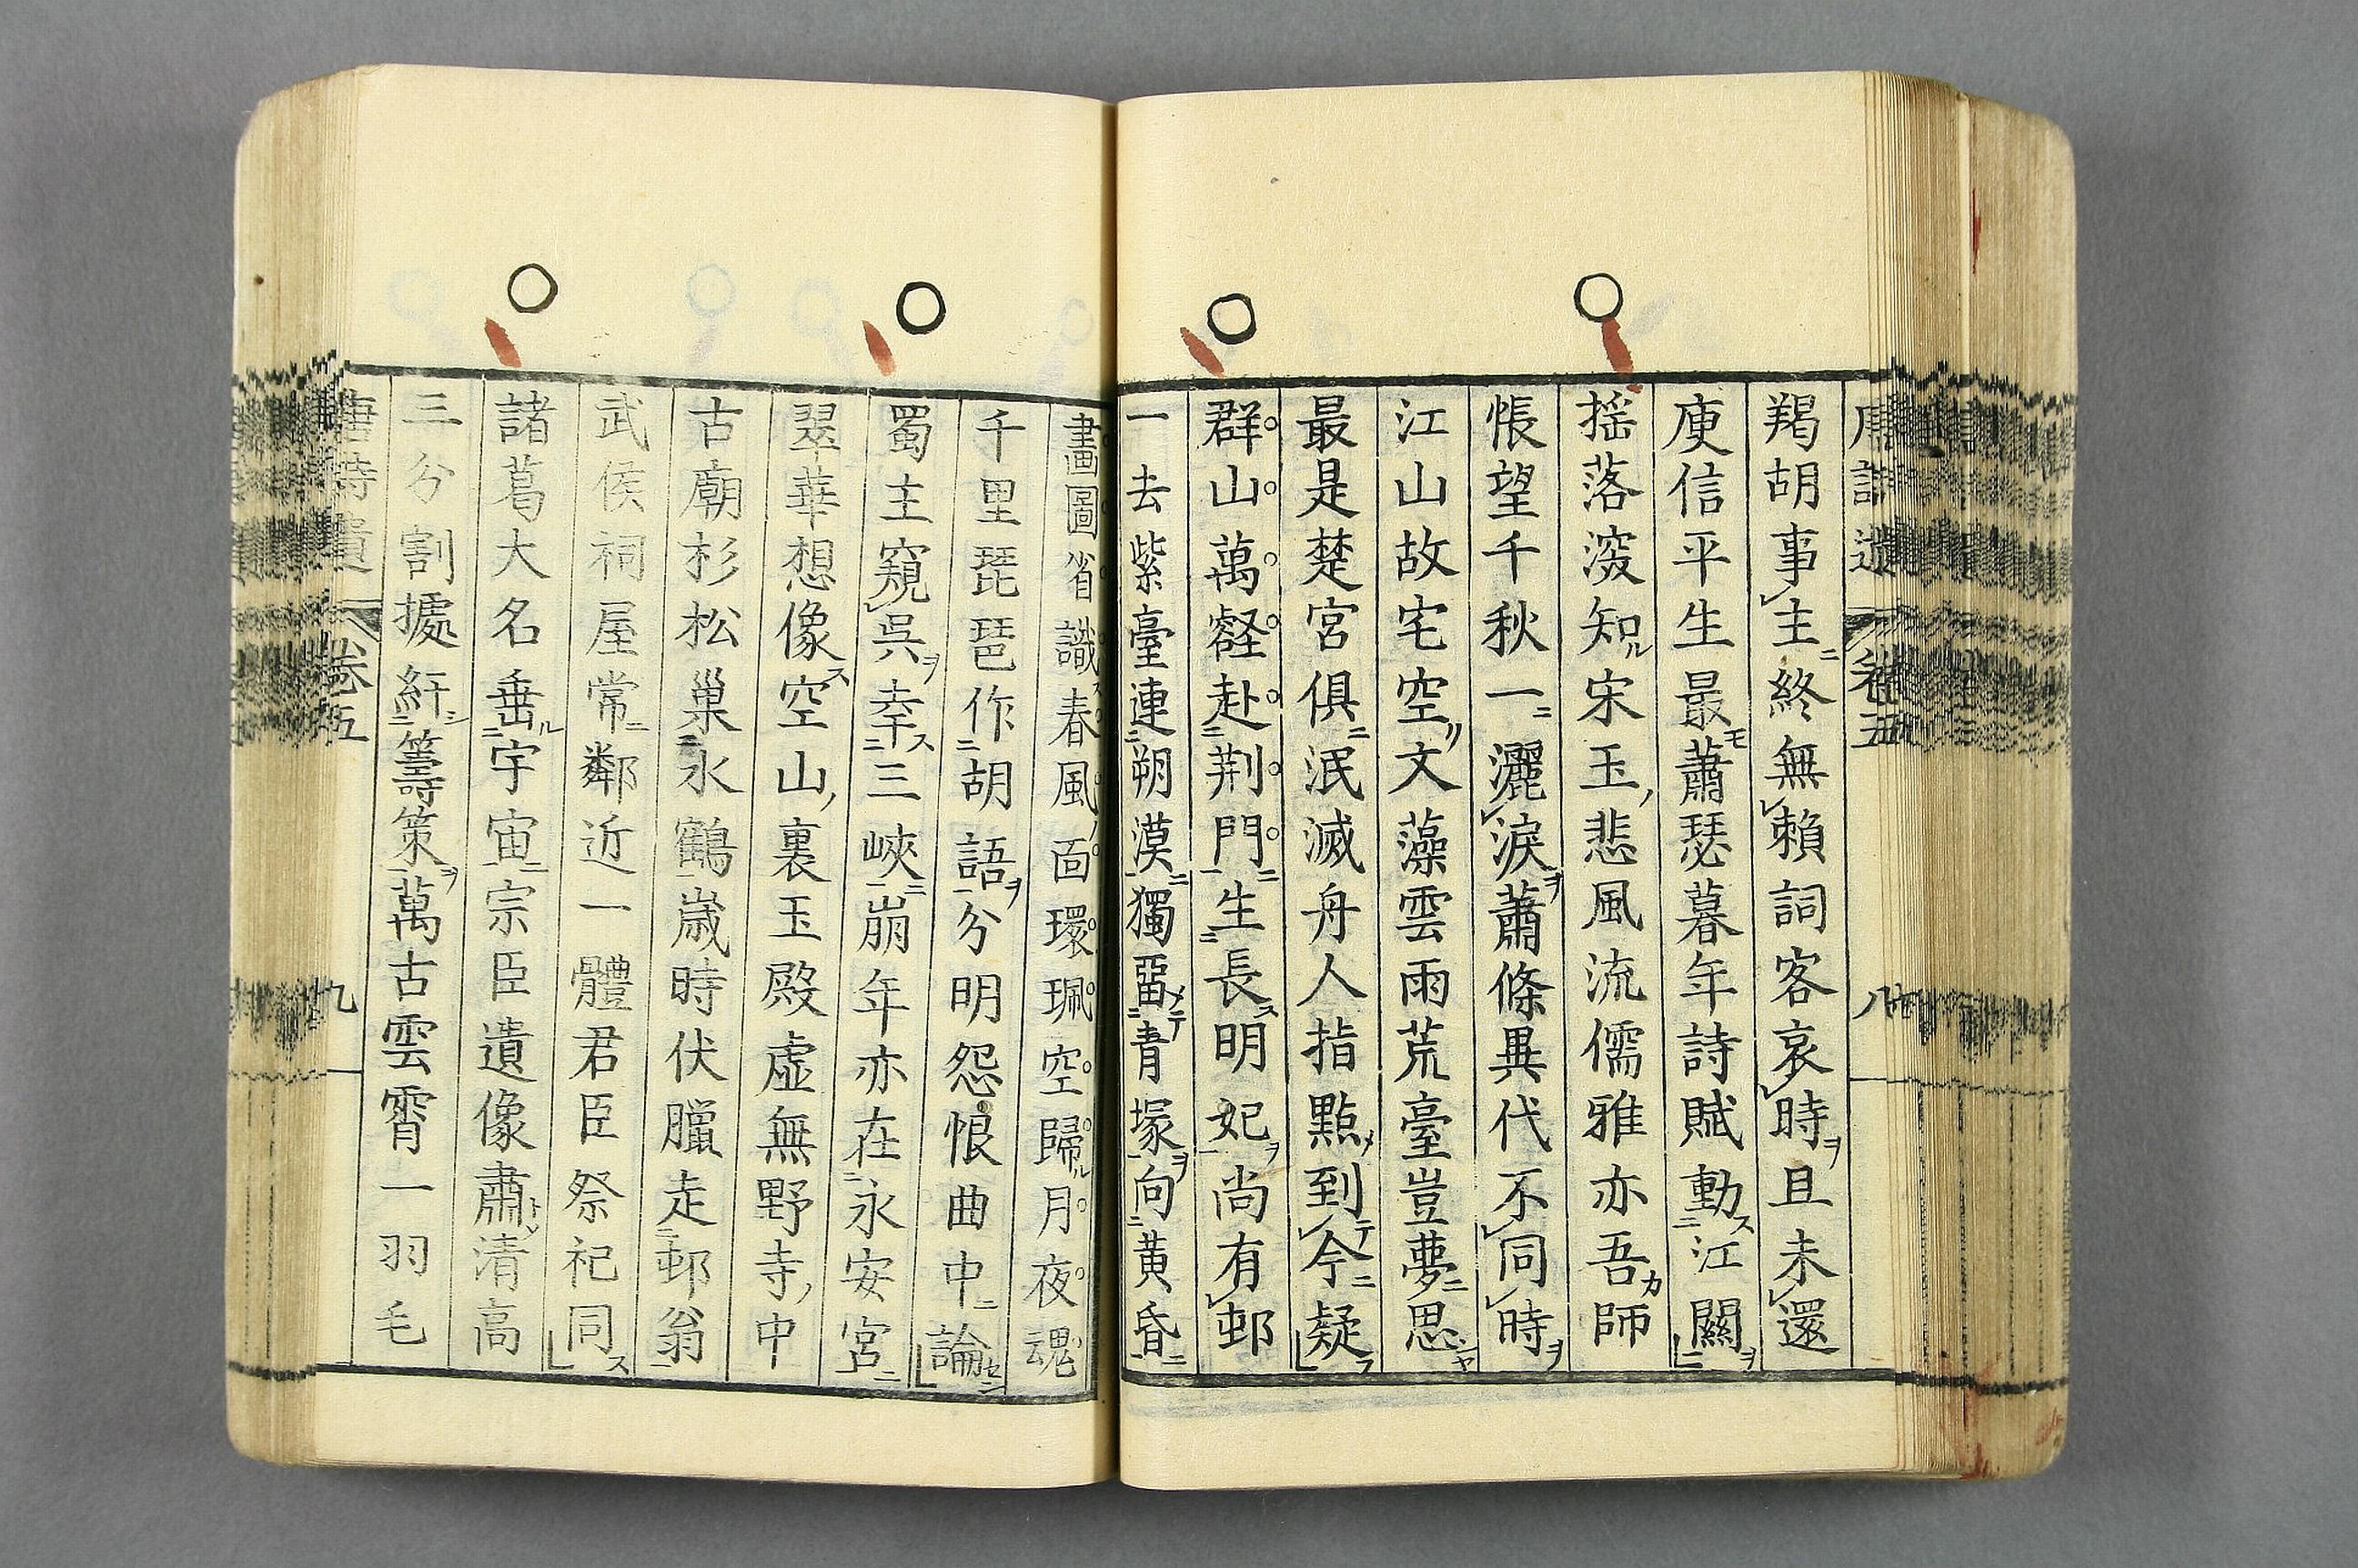 羯胡事主終無賴詞客哀時且未還
庾信平生最蕭瑟暮年詩賦動江關
揺落深知宋玉悲風流儒雅亦吾師
悵望千秋一灑淚蕭條異代不同時
江山故宅空文藻雲雨荒臺豈夢思
最是楚宮俱泯滅舟人指點到今疑
群山萬壑赴荆門生長明妃尚有邨
一去紫臺連朔漠獨畱青塚向黄昏
畫圖省識春風面環珮空歸月夜魂
千里琵琶作胡語分明怨恨曲中論
蜀主窺吳幸三峽崩年亦在永安宮
翠華想像空山裏玉殿虛無野寺中
古廟杉松巢水鶴歳時伏臘走邨翁
武侯祠屋常鄰近一體君臣祭祀同
諸葛大名垂宇宙宗臣遺像肅清高
三分割據紆籌策萬古雲霄一羽毛
卷五
九